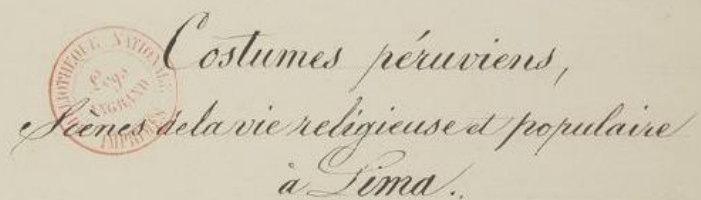 Costumes péruviens,
Scènes de la vie religieuse et populaire
à Lima.
BIBLIOTHÈQUE NATIONALE
Legs
ANGRAND
IMPRIMÉS